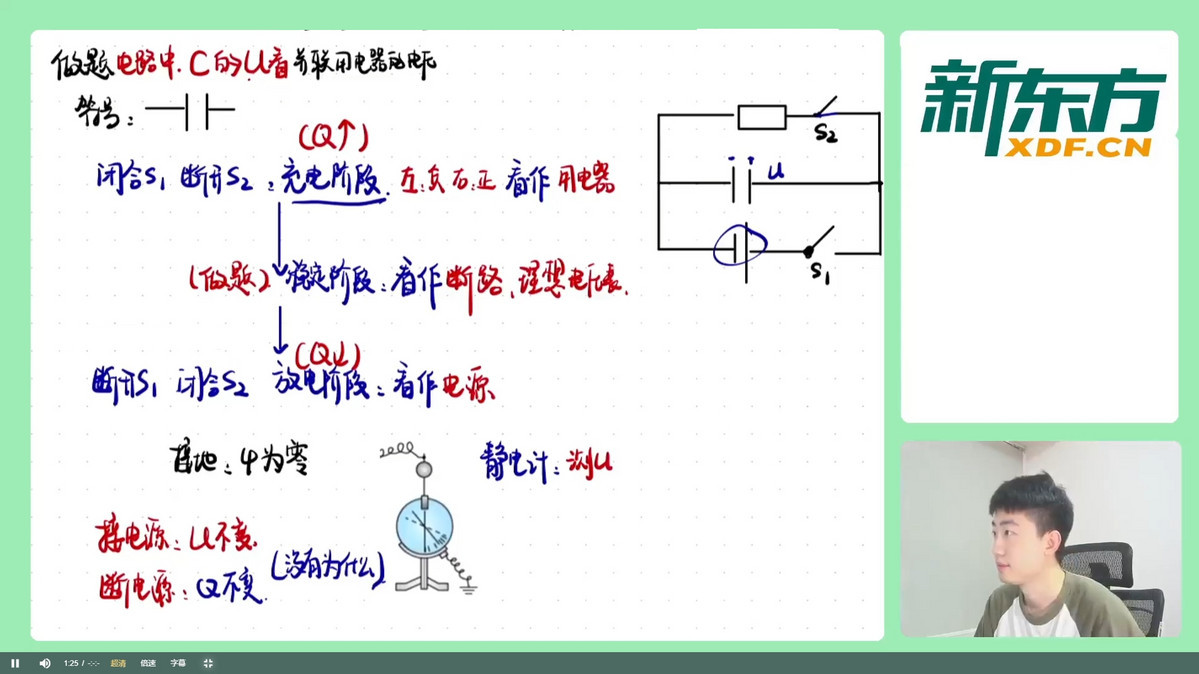 做题 电路中. C的U看并联用电器的电压
符号:
(Q↑)
闭合S1 断开S2 : 充电阶段. 左:负 右:正 看作 用电器
(做题) 稳定阶段: 看作断路、理想电压表.
(Q↓)
断开S1 闭合S2 放电阶段: 看作电源
接地: φ为零
静电计: 测U
接电源: U不变.
断电源: Q不变. (没有为什么)
S2
U
S1
新东方
XDF.CN
1:25 / -:-:- 超清 倍速 字幕